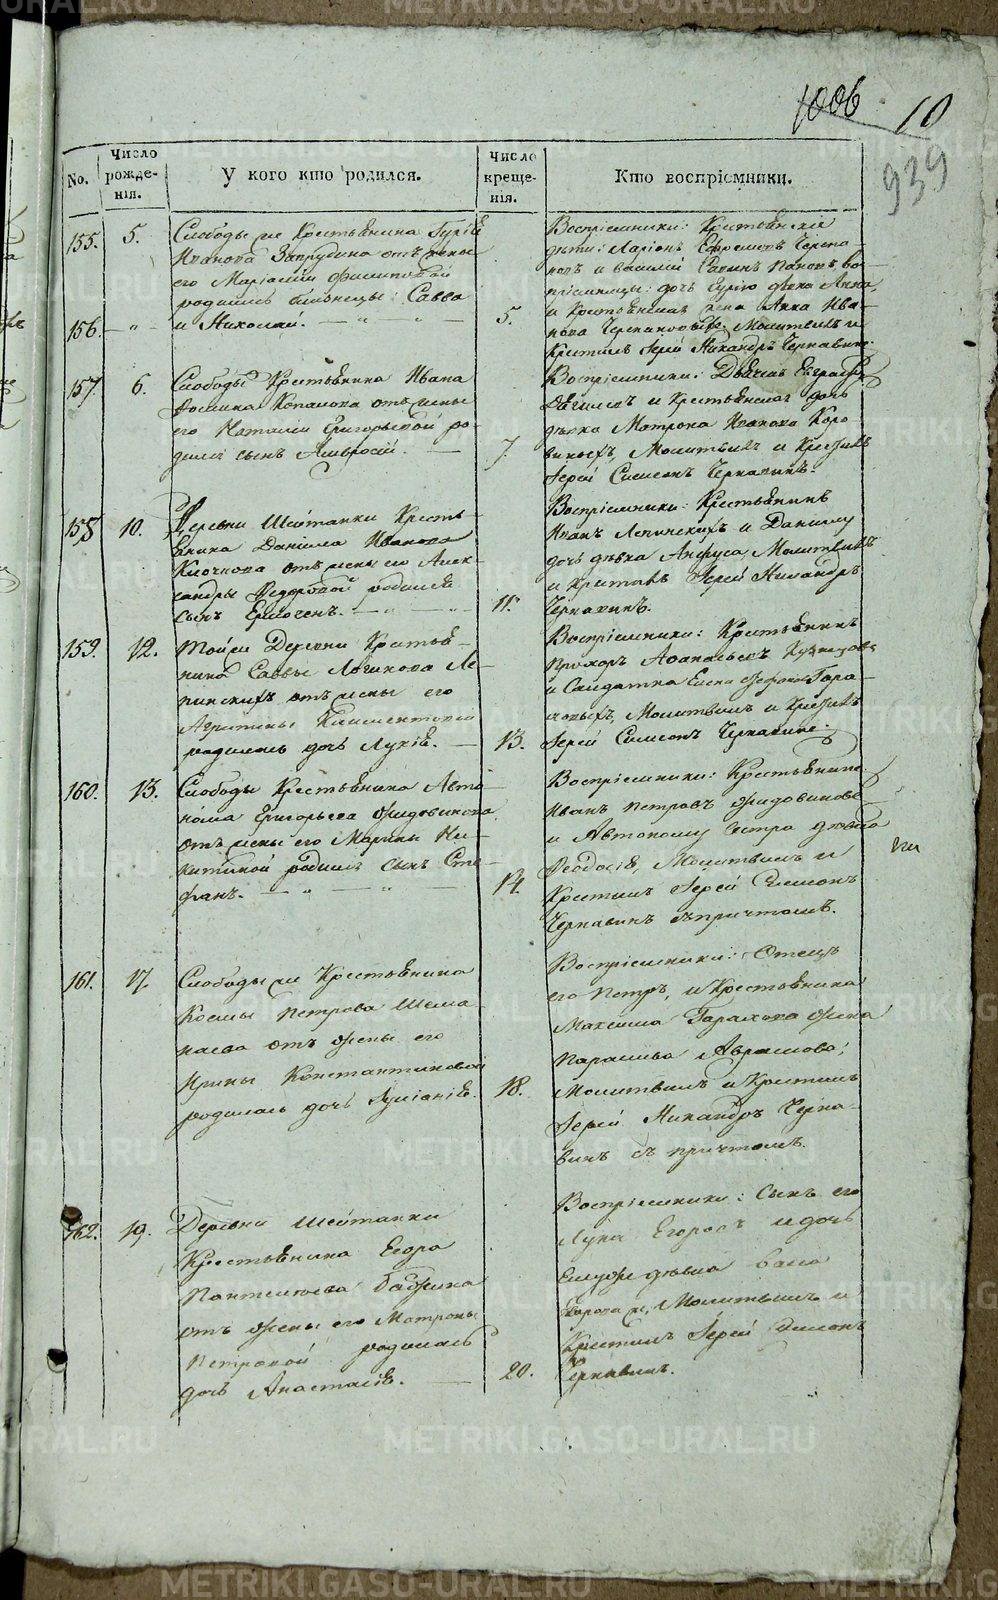 1006 10
939
No.
Число рожденія.
У кого кто родился.
Число крещенія.
Кто воспріемники.
155. 5.
Слободы Крестьянина Гурія
Иванова Запрудина отъ жены
его Маріаміи Филиповой
родились близнецы: Савва
156. — „ —
и Николай. — „ — „
5.
Воспріемники: Крестьянскіе
дѣти: Ларіонъ Ефремовъ Черепа-
новъ и Василій Савинъ Пановъ, во-
спріемницы: дочь Гурію дѣвка Анна,
и Крестьянская жена Анна Ива-
нова Черепановыхъ. Молитвилъ и
Крестилъ Іерей Никандръ Чернавинъ.
157. 6.
Слободы Крестьянина Ивана
Фомина Копалова отъ жены
его Наталіи Григорьевой ро-
дился сынъ Амвросій. —
7.
Воспріемники: Дьячекъ
и Крестьянская дочь
дѣвка Матрона Иванова Коро-
виныхъ, Молитвилъ и Крестилъ
Іерей Симеонъ Чернавинъ.
158 10.
Деревни Шайтанки Кресть-
янина Даніила Иванова
Клочкова отъ жены его Алек-
сандры Федоровой родился
сынъ Ермогенъ. — „ — „
11.
Воспріемники: Крестьянинъ
Иванъ Лепинскихъ и Данилу
дочь дѣвка Анфуса, Молитвилъ
и Крестилъ Іерей Никандръ
Чернавинъ.
159. 12.
Той же Деревни Крестья-
нина Саввы Логинова Ле-
пинскихъ отъ жены его
Агрипины Климентовой
родилась дочь Лукія. —
13.
Воспріемники: Крестьянинъ
Прохоръ Афанасьевъ Кузнецовъ
и Салдатка Елена Гора-
ховыхъ, Молитвилъ и Крестилъ
Іерей Симеонъ Чернавинъ.
160. 13.
Слободы Крестьянина Авто-
нома Григорьева Жидовинова
отъ жены его Марины Ни-
китиной родился сынъ Сте-
фанъ. — „ — „ —
14.
Воспріемники: Крестьянинъ
Иванъ Петровъ Жидовиновъ
и Автоному сестра дѣвка
Феодосія, Молитвилъ и
Крестилъ Іерей Симеонъ
Чернавинъ съ причтомъ.
161. 17.
Слободы Крестьянина
Космы Петрова Шема-
наева отъ жены его
Ирины Константиновой
родилась дочь Іуліанія.
18.
Воспріемники: Отецъ
его Петръ, и Крестьянина
Максима Горахова жена
Парасковья Аврамова;
Молитвилъ и Крестилъ
Іерей Никандръ Черна-
винъ съ причтомъ.
162. 19.
Деревни Шайтанки
Крестьянина Егора
Пантелѣева Бабкина
отъ жены его Матроны
Петровой родилась
дочь Анастасія. —
20.
Воспріемники: Сынъ его
Лука Егоровъ и дочь
дѣвка
Егорова же, Молитвилъ и
Крестилъ Іерей Симеонъ
Чернавинъ.
METRIKI.GASO-URAL.RU